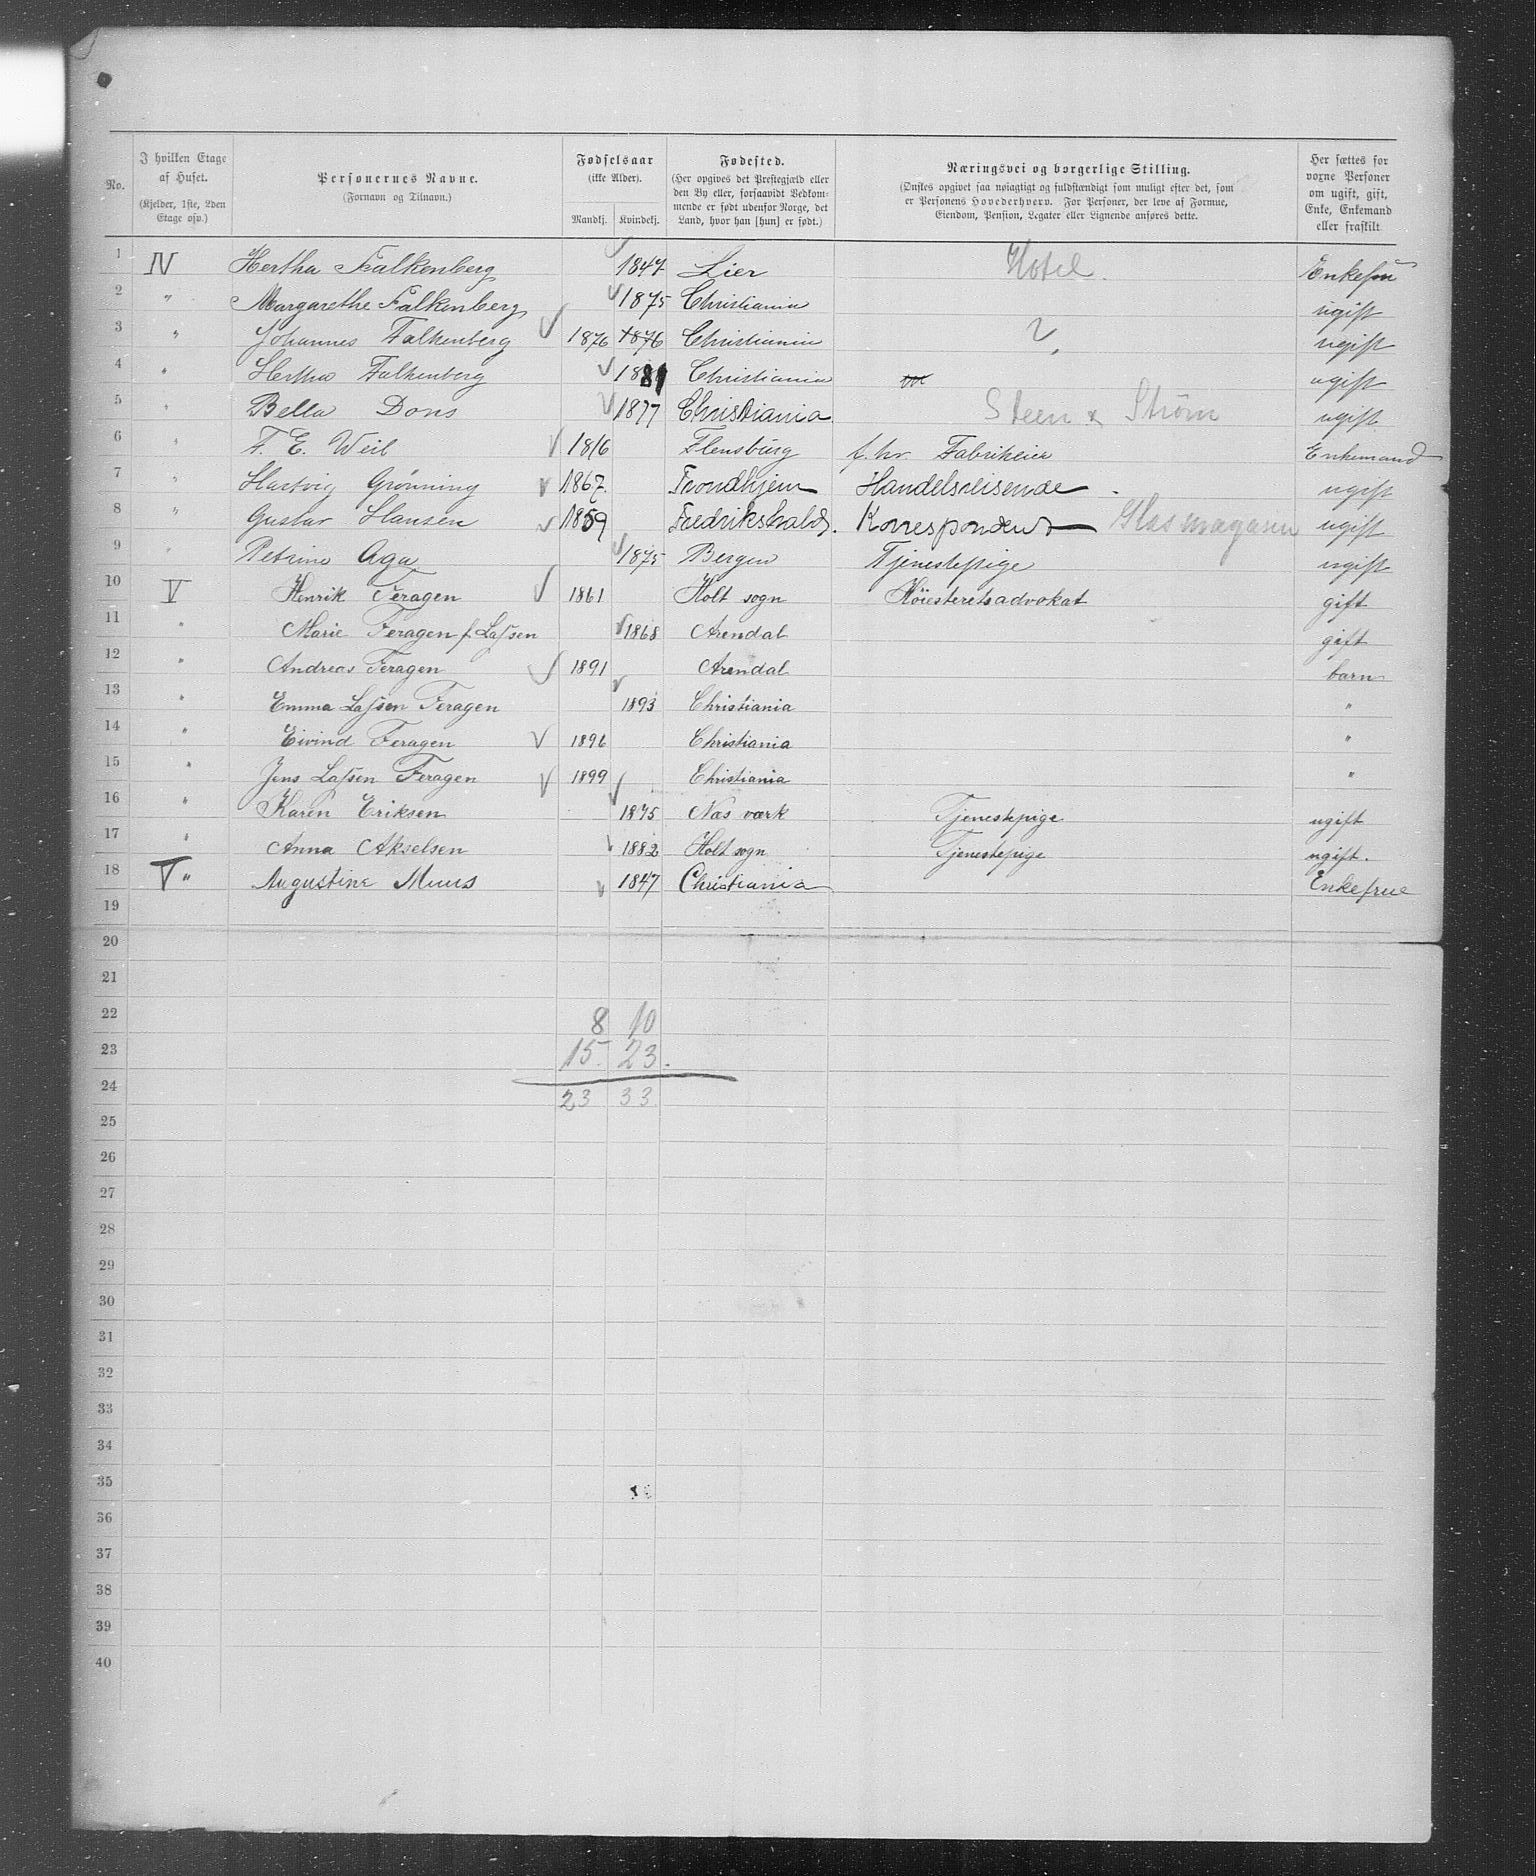 No.
I hvilken Etage af Huset.
(Kjelder, 1ste, 2den Etage osv.)
Personernes Navne.
(Fornavn og Tilnavn.)
Fødselsaar
(ikke Alder).
Mandkj. Kvindekj.
Fødested.
(Her opgives det Prestegjæld eller
den By eller, forsaavidt Vedkom-
mende er født udenfor Norge, det
Land, hvor han [hun] er født.)
Næringsvei og borgerlige Stilling.
(Ønskes opgivet saa nøiagtigt og fuldstændigt som muligt efter det, som
er Personens Hovederhverv. For Personer, der leve af Formue,
Eiendom, Pension, Legater eller Lignende anføres dette.
Her sættes for
vogne Personer
om ugift, gift,
Enke, Enkemand
eller fraskilt
1 IV Hertha Falkenberg 1847 Lier Hotel. Enkefru
2 " Margarethe Falkenberg 1875 Christiania ugift
3 " Johannes Falkenberg 1876 1876 Christiania ? ugift
4 " Hertha Falkenberg 1881 Christiania ugift
5 " Bella Dons 1877 Christiania Steen & Strøm ugift
6 " F. E. Weil 1816 Flensburg f. hv. Fabrikeier Enkemand
7 " Hartvig Grønning 1867. Trondhjem Handelsreisende ugift
8 " Gustav Hansen 1859 Fredrikshald. Korrespondent Glasmagasin ugift
9 " Petrine Aga 1875 Bergen Tjenestepige ugift
10 V Henrik Feragen 1861 Holt sogn Høiesteretsadvokat gift
11 " Marie Feragen f. Lassen 1868 Arendal gift
12 " Andreas Feragen 1891 Arendal barn
13 " Emma Lassen Feragen 1893 Christiania "
14 " Eivind Feragen 1896 Christiania "
15 " Jens Lassen Feragen 1899 Christiania "
16 " Karen Eriksen 1875 Næs værk Tjenestepige ugift
17 " Anna Akselsen 1882 Holt sogn Tjenestepige ugift.
18 V " Augustine Muus 1847 Christiania Enkefrue
19
20
21
22 8 10
23 15. 23.
24 23 33
25
26
27
28
29
30
31
32
33
34
35
36
37
38
39
40